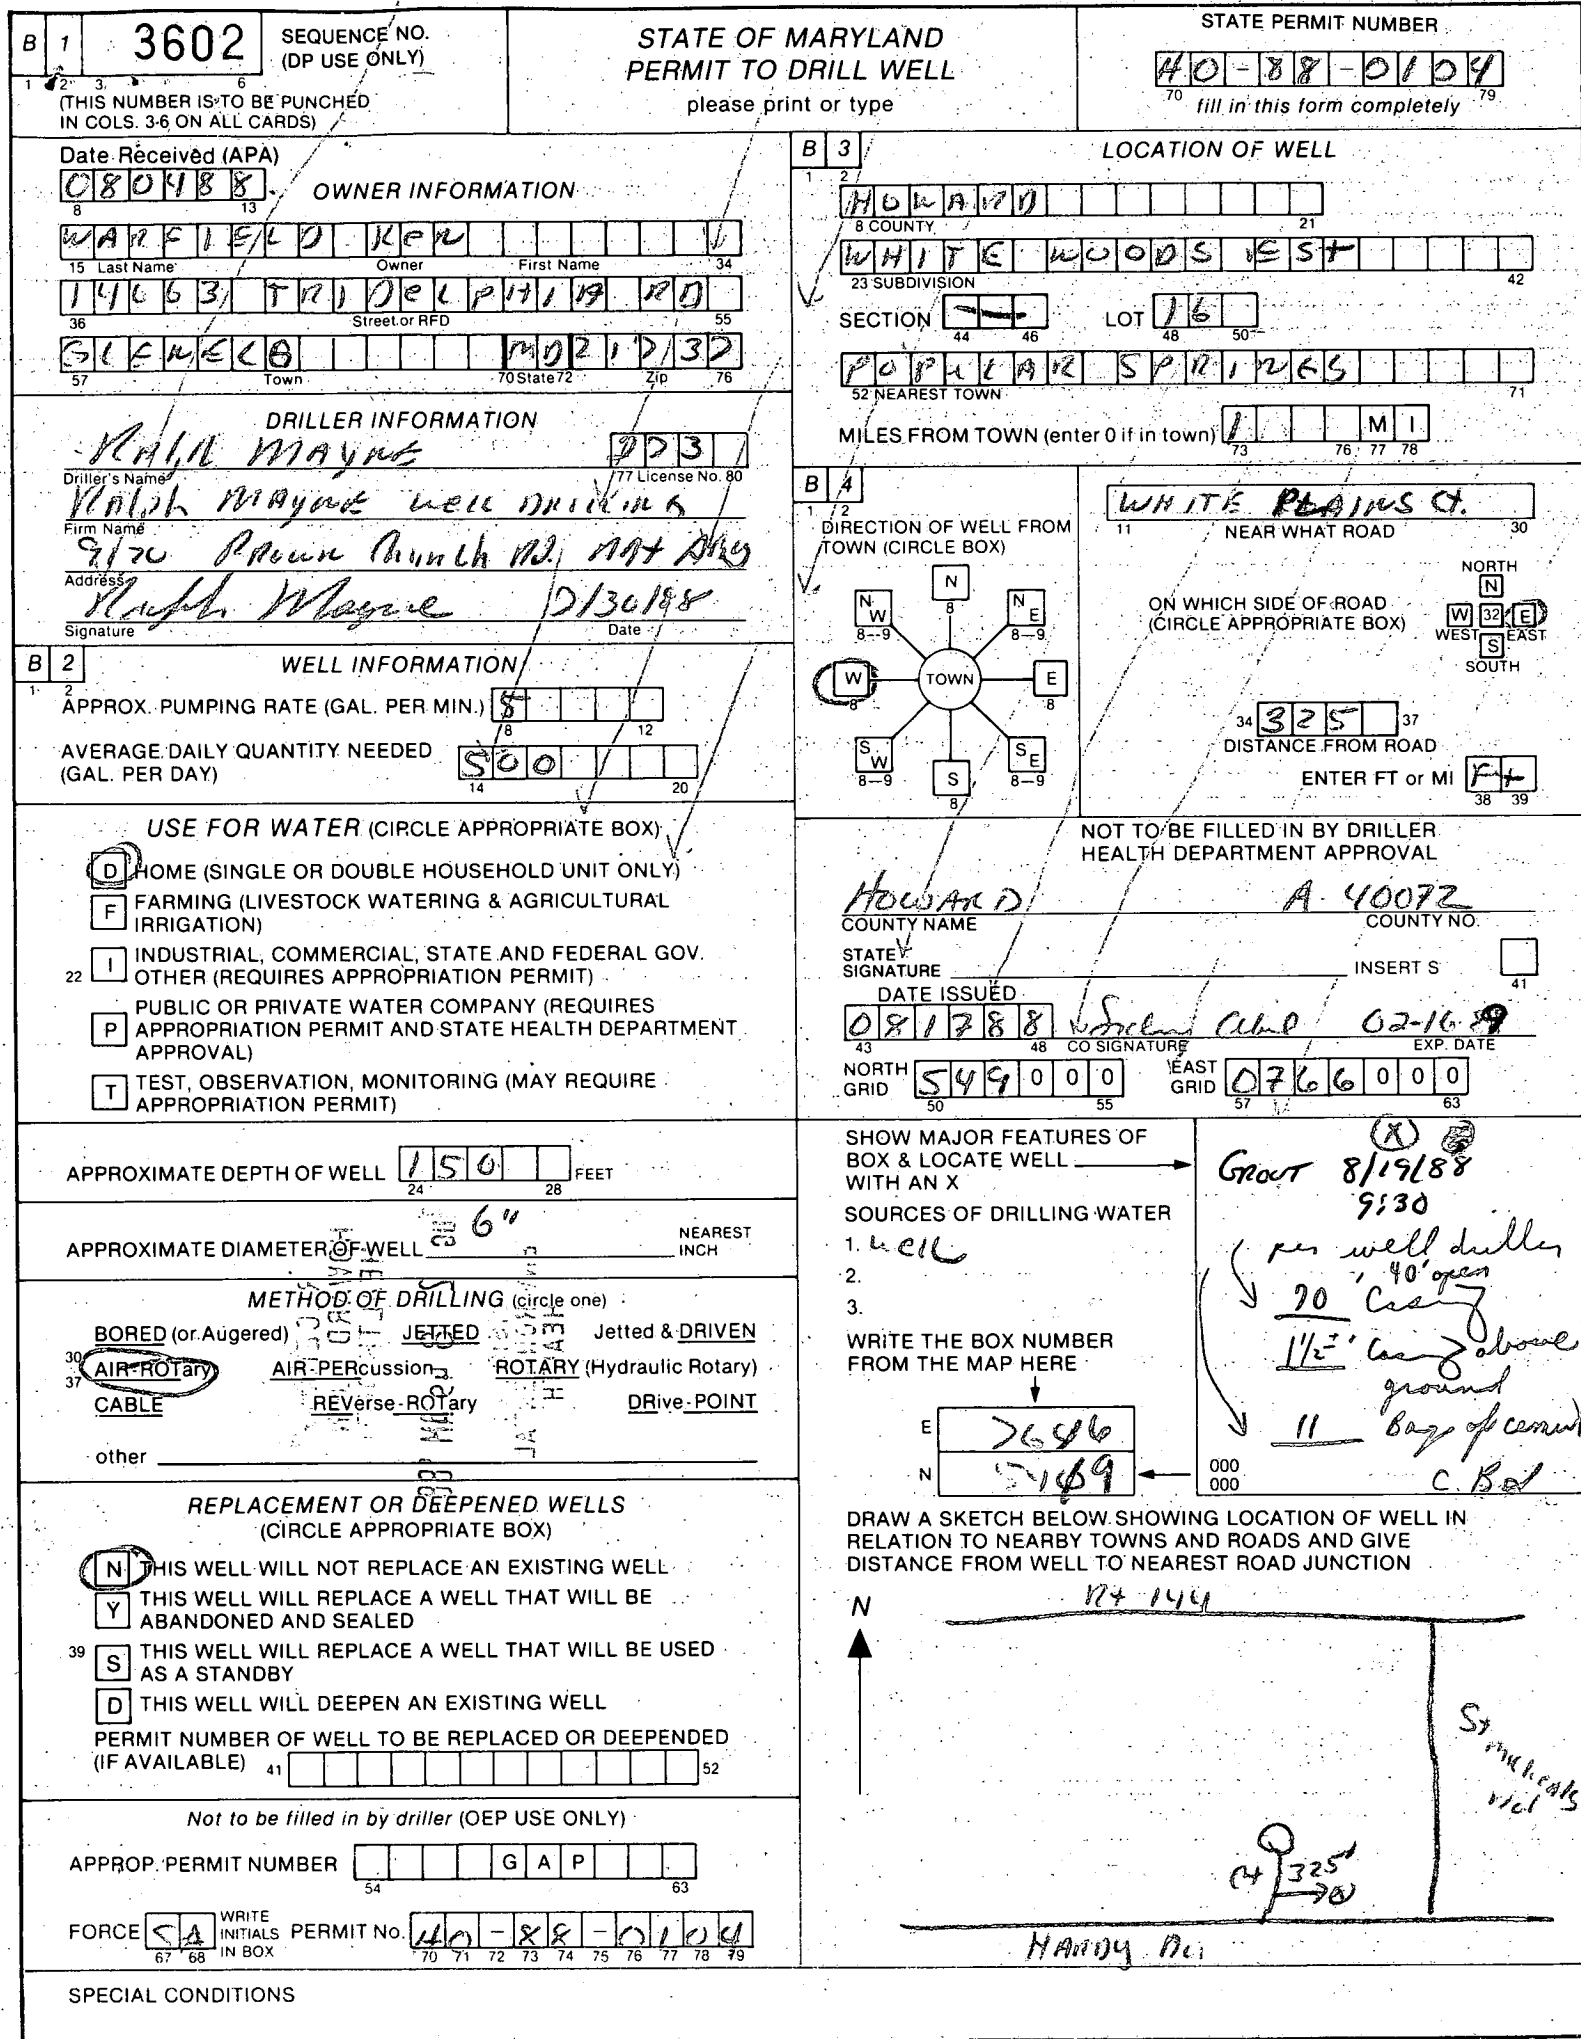 B 1 3602 SEQUENCE NO. (DP USE ONLY)
1 2 3 6
(THIS NUMBER IS TO BE PUNCHED
IN COLS. 3-6 ON ALL CARDS)
STATE OF MARYLAND
PERMIT TO DRILL WELL
please print or type
STATE PERMIT NUMBER
HO-88-0104
70 fill in this form completely 79
Date Received (APA)
080488
8 13
OWNER INFORMATION
WARFIELD KEN
15 Last Name Owner First Name 34
14663 TRIDELPHIA RD
36 Street or RFD 55
GLENELG MD 21737
57 Town 70 State 72 Zip 76
DRILLER INFORMATION
Ralph MAYNE 273
Driller's Name 77 License No. 80
Ralph MAYNE Well Drilling
Firm Name
9120 Brown Church Rd. Mt Airy
Address
Ralph Mayne 7/30/88
Signature Date
B 2 WELL INFORMATION
1 2
APPROX. PUMPING RATE (GAL. PER MIN.) 5
8 12
AVERAGE DAILY QUANTITY NEEDED
(GAL. PER DAY) 500
14 20
USE FOR WATER (CIRCLE APPROPRIATE BOX)
D HOME (SINGLE OR DOUBLE HOUSEHOLD UNIT ONLY)
F FARMING (LIVESTOCK WATERING & AGRICULTURAL
IRRIGATION)
22 I INDUSTRIAL, COMMERCIAL, STATE AND FEDERAL GOV.
OTHER (REQUIRES APPROPRIATION PERMIT)
P PUBLIC OR PRIVATE WATER COMPANY (REQUIRES
APPROPRIATION PERMIT AND STATE HEALTH DEPARTMENT
APPROVAL)
T TEST, OBSERVATION, MONITORING (MAY REQUIRE
APPROPRIATION PERMIT)
APPROXIMATE DEPTH OF WELL 150 FEET
24 28
APPROXIMATE DIAMETER OF WELL 6" NEAREST
INCH
METHOD OF DRILLING (circle one)
BORED (or Augered) JETTED Jetted & DRIVEN
30 AIR-ROTary AIR-PERcussion ROTARY (Hydraulic Rotary)
37
CABLE REVerse-ROTary DRive-POINT
other
REPLACEMENT OR DEEPENED WELLS
(CIRCLE APPROPRIATE BOX)
N THIS WELL WILL NOT REPLACE AN EXISTING WELL
Y THIS WELL WILL REPLACE A WELL THAT WILL BE
ABANDONED AND SEALED
39 S THIS WELL WILL REPLACE A WELL THAT WILL BE USED
AS A STANDBY
D THIS WELL WILL DEEPEN AN EXISTING WELL
PERMIT NUMBER OF WELL TO BE REPLACED OR DEEPENDED
(IF AVAILABLE) 41 52
Not to be filled in by driller (OEP USE ONLY)
APPROP. PERMIT NUMBER G A P
54 63
FORCE SA WRITE INITIALS IN BOX PERMIT No. HO-88-0104
67 68 70 71 72 73 74 75 76 77 78 79
SPECIAL CONDITIONS
B 3 LOCATION OF WELL
1 2
HOWARD
8 COUNTY 21
WHITE WOODS EST
23 SUBDIVISION 42
SECTION — LOT 16
44 46 48 50
POPULAR SPRINGS
52 NEAREST TOWN 71
MILES FROM TOWN (enter 0 if in town) 1 M I
73 76 77 78
B 4
1 2
DIRECTION OF WELL FROM
TOWN (CIRCLE BOX)
N 8
NW 8-9
NE 8-9
W 8
TOWN
E 8
SW 8-9
SE 8-9
S 8
WHITE PLAINS Ct.
11 NEAR WHAT ROAD 30
ON WHICH SIDE OF ROAD
(CIRCLE APPROPRIATE BOX)
NORTH
N
W 32 E
WEST EAST
S
SOUTH
34 325 37
DISTANCE FROM ROAD
ENTER FT or MI Ft
38 39
NOT TO BE FILLED IN BY DRILLER
HEALTH DEPARTMENT APPROVAL
HOWARD A 40072
COUNTY NAME COUNTY NO.
STATE
SIGNATURE INSERT S
41
DATE ISSUED
081788 02-16-89
43 48 CO SIGNATURE EXP. DATE
NORTH GRID 549000 EAST GRID 0766000
50 55 57 63
SHOW MAJOR FEATURES OF
BOX & LOCATE WELL
WITH AN X
SOURCES OF DRILLING WATER
1. Well
2.
3.
WRITE THE BOX NUMBER
FROM THE MAP HERE
E
N
000
000
(X)
GROUT 8/19/88
9:30
per well driller
40' open
Casing
1 1/2' Casing above
ground
11 Bags of cement
DRAW A SKETCH BELOW SHOWING LOCATION OF WELL IN
RELATION TO NEARBY TOWNS AND ROADS AND GIVE
DISTANCE FROM WELL TO NEAREST ROAD JUNCTION
N
Rt 144
St Micheals Rd
Ct 325'
HARDY Rd